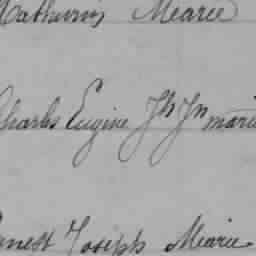 Mathurin Mearie
Charles Eugine Jh Jn marie
Ernest Joseph Mearie